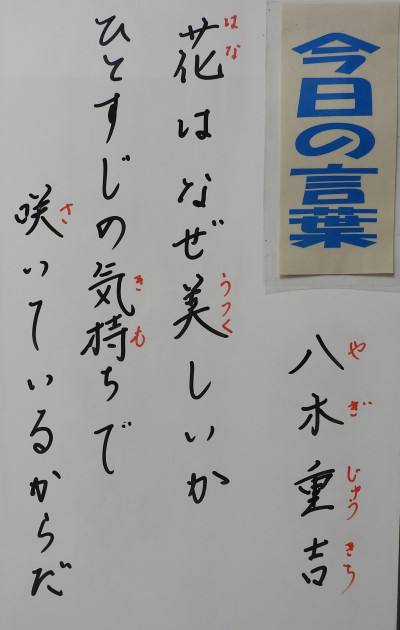 今日の言葉
八木重吉
やぎじゅうきち
花はなぜ美しいか
はな
うつく
ひとすじの気持ちで
きも
咲いているからだ
さ